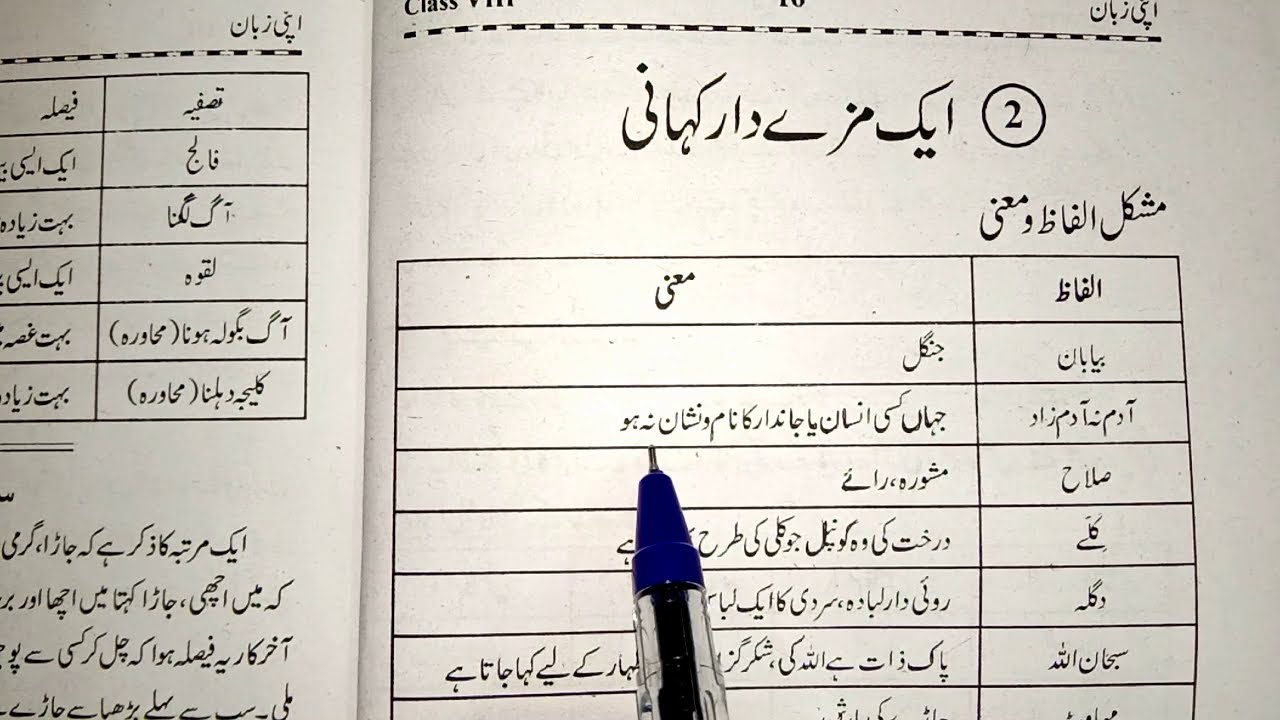 اپنی زبان
Class VIII
اپنی زبان
2 ایک مزے دار کہانی
مشکل الفاظ و معنی
الفاظ معنی
بیابان جنگل
آدم نہ آدم زاد جہاں کسی انسان یا جاندار کا نام و نشان نہ ہو
صلاح مشورہ، رائے
کِلّے درخت کی وہ کونپل جو کلی کی طرح ہے
دگلہ روئی دار لبادہ، سردی کا ایک لباس
سبحان اللہ پاک ذات ہے اللہ کی، شکر کے لیے کہا جاتا ہے
تصفیہ فیصلہ
فالج ایک ایسی
آگ لگنا بہت زیادہ
لقوہ ایک ایسی
آگ بگولہ ہونا (محاورہ) بہت غصہ
کلیجہ دہلنا (محاورہ) بہت
ایک مرتبہ کا ذکر ہے کہ جاڑا، گرمی
کہ میں اچھی، جاڑا کہتا میں اچھا اور
آخر کار یہ فیصلہ ہوا کہ چل کر کسی سے
ملی۔ سب سے پہلے بڑھیا سے جاڑے